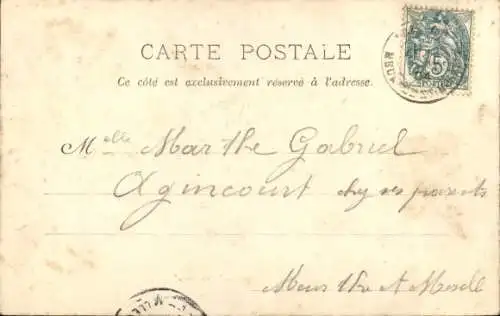 CARTE POSTALE
Ce côté est exclusivement réservé à l'adresse.
5
Melle Marthe Gabriel
Agincourt chez ses parents
Meurthe et Moselle